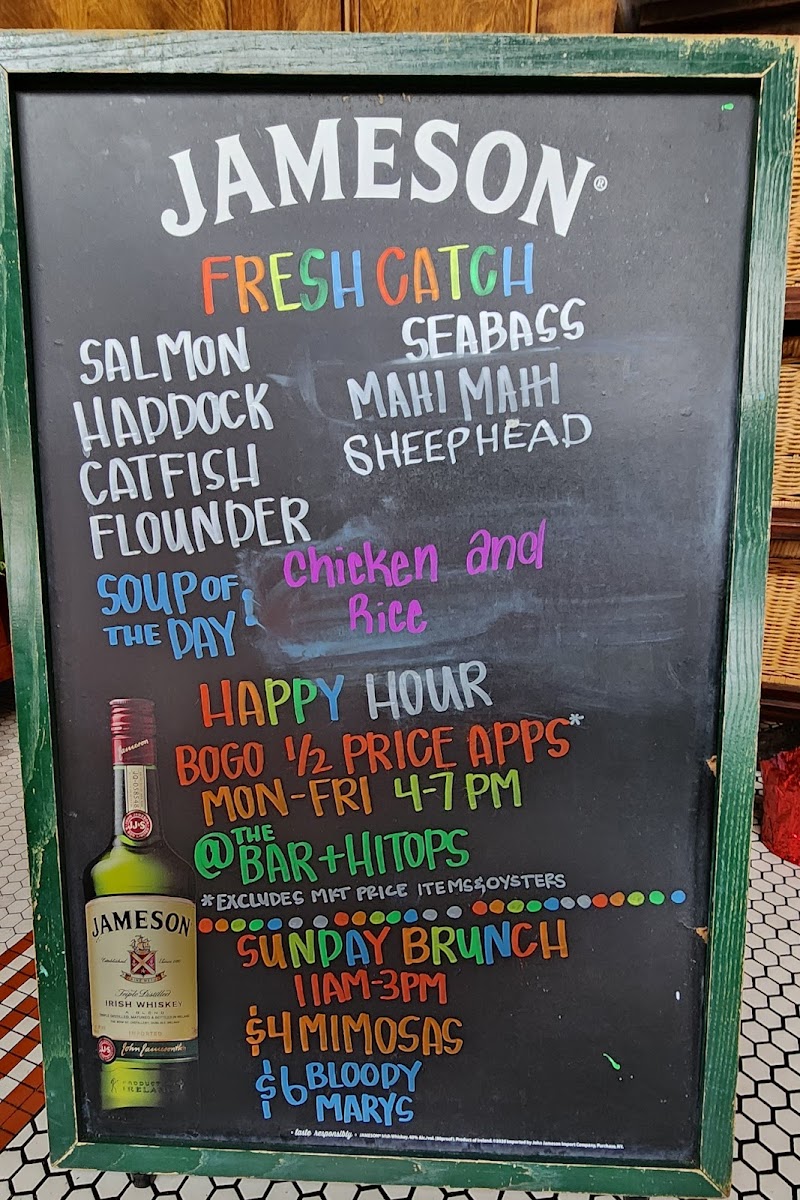 JAMESON®
FRESH CATCH
SALMON
HADDOCK
CATFISH
FLOUNDER
SEABASS
MAHI MAHI
SHEEPHEAD
SOUP OF
THE DAY!
Chicken and
Rice
HAPPY HOUR
BOGO 1/2 PRICE APPS*
MON-FRI 4-7 PM
@ THE
BAR+HITOPS
*EXCLUDES MKT PRICE ITEMS & OYSTERS
SUNDAY BRUNCH
11AM-3PM
$4 MIMOSAS
$6 BLOODY
MARYS
Jameson
JJ&S
JAMESON
Established Since 1780
Triple Distilled
IRISH WHISKEY
A BLEND
IMPORTED
JJ&S
John Jameson
PRODUCT
IRELAND
taste responsibly.